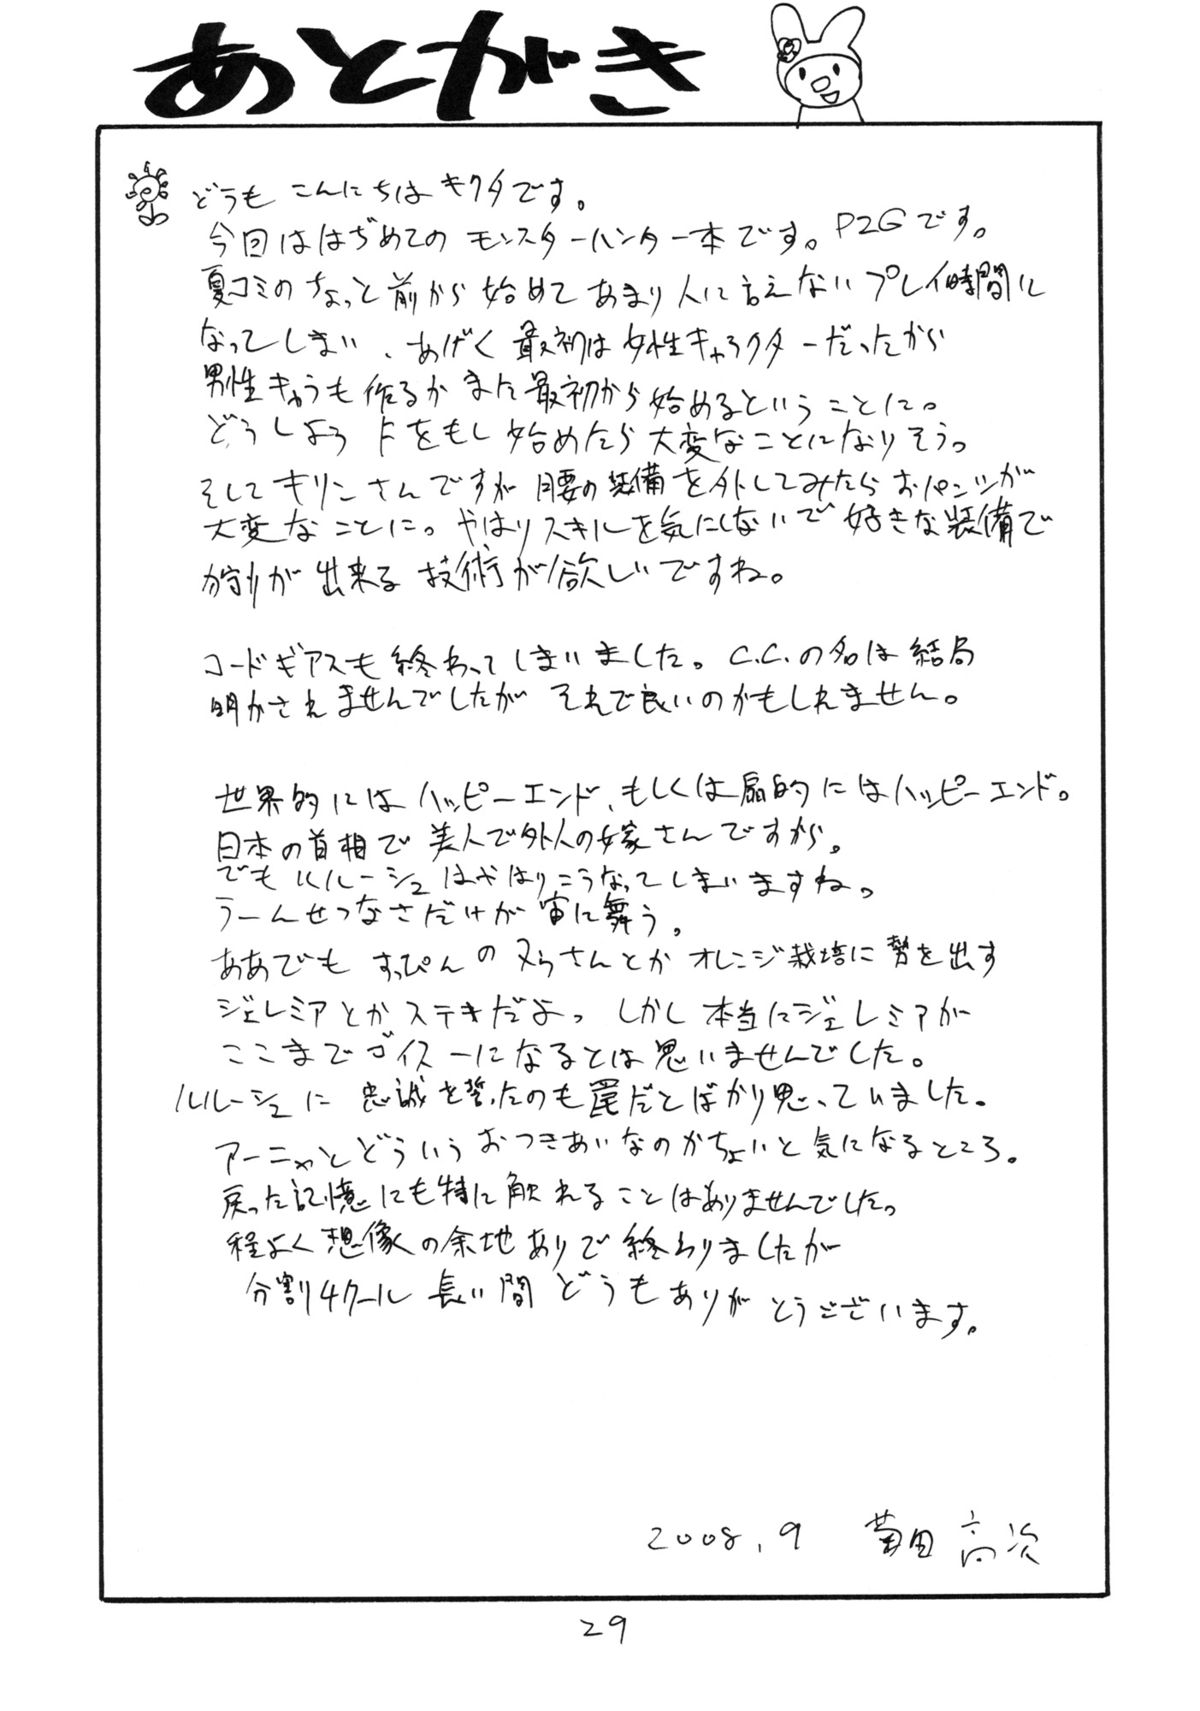 あとがき
どうも こんにちは キクタです。
今回は はぢめての モンスターハンター本です。P2Gです。
夏コミの ちょっと 前から 始めて あまり 人に 言えない プレイ時間に
なってしまい、あげく 最初は 女性キャラクターだったから
男性キャラも 作るか また 最初から 始める ということに。
どうしよう Fをもし 始めたら 大変なことになりそうっ
そして キリンさんですが 腰の 装備を 外してみたら おパンツが
大変なことに。やはり スキルを 気にしないで 好きな 装備で
狩りが 出来る 技術が 欲しいですね。
コードギアスも 終わってしまいました。C.C.の 名は 結局
明かされませんでしたが それで良いのかもしれません。
世界的には ハッピーエンド、もしくは 扇的には ハッピーエンド。
日本の 首相で 美人で 外人の 嫁さんですから。
でも ルルーシュは やはり こうなってしまいますね。
うーん せつなさだけが 宙に 舞う。
ああでも すっぴんの ヌゥさんとか オレンジ 栽培に 勢を 出す
ジェレミアとか ステキだよっ しかし 本当に ジェレミアが
ここまで ゴイスーになるとは 思いませんでした。
ルルーシュに 忠誠を 誓ったのも 罠だとばかり 思っていました。
アーニャと どういう おつきあいなのか ちょいと 気になるところ。
戻った 記憶にも 特に 触れることは ありませんでしたっ
程よく 想像の 余地ありで 終わりましたが
分割4クール 長い間 どうも ありがとうございます。
2008.9 菊田 高次
29